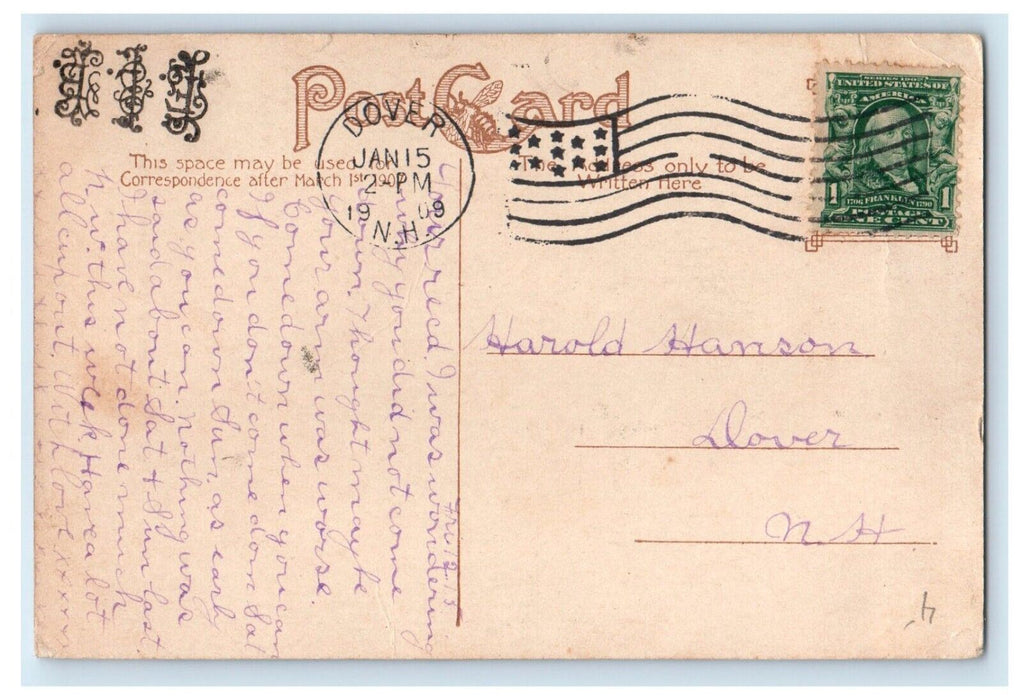 Post Card
This space may be used for
Correspondence after March 1st 1907
The Address only to be
Written Here
DOVER
JAN 15
2-PM
1909
N.H.
SERIES 1902
UNITED STATES OF
AMERICA
1706 FRANKLIN 1790
POSTAGE
1 ONE CENT 1
Harold Hanson
Dover
N. H.
Fri. 12.15
Your recd. I was wondering
why you did not come
down. Thought maybe
your arm was worse.
Come down when you can
If you don't come down Sat
come down Sun. as early
as you can. Nothing was
said about Sat & Sun last.
I have not done much
this week. Have a lot
all cut out. With love xxxxx
4